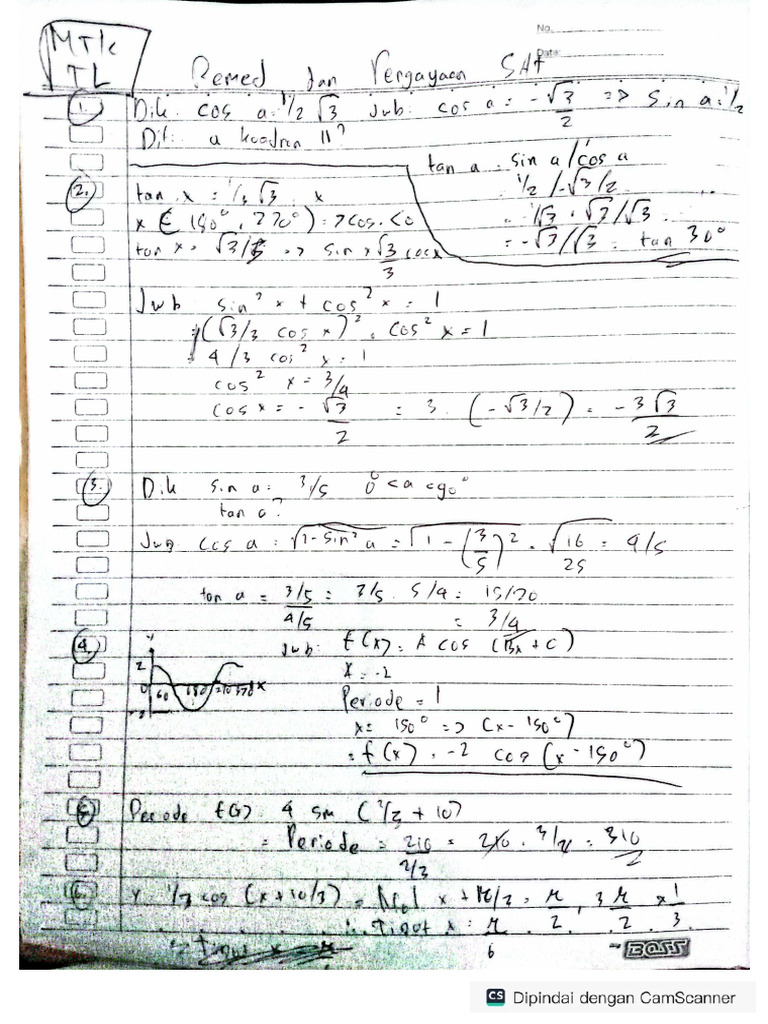 No.
Date:
MTK
TL
Remed dan Pengayaan SAT
1. Dik. cos a = 1/2 √3 Jwb: cos a = - √3/2 => sin a = 1/2
Dit: a kuadran II?
tan a = sin a / cos a
= 1/2 / -√3/2
= -√3/√3 = tan 30°
2. tan x = 1/3 √3 . x
x € (180°, 270°) => cos < 0
tan x = √3/3 => sin x √3/3 cos x
Jwb sin² x + cos² x = 1
(√3/3 cos x)² . cos² x = 1
4/3 cos² x = 1
cos² x = 3/4
cos x = - √3/2 = 3 . (- √3/2) = - 3√3/2
3. Dik sin a = 3/5 0° < a < 90°
tan a?
Jwb cos a = √1 - sin² a = √1 - (3/5)² = √16/25 = 4/5
tan a = 3/5 / 4/5 = 3/5 . 5/4 = 15/20
= 3/4
4. Y 2 0 60 180 270 X
Jwb: f(x) = A cos (Bx + C)
Periode = 1
x = 150° => (x - 150°)
= f(x) = -2 cos (x - 150°)
5. Periode f(x) 4 sin (2/3 + 10)
= Periode =
6. Y 1/3 cos (x + 10/3) = Nol
BOSS
CS Dipindai dengan CamScanner